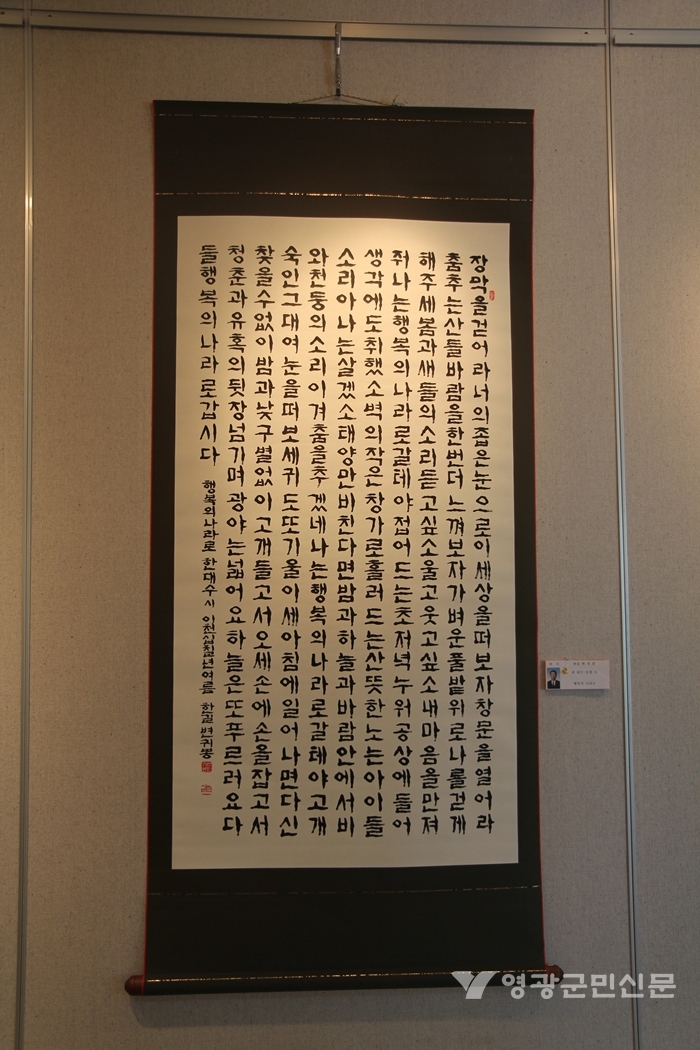 장막을걷어라너의좁은눈으로이세상을떠보자창문을열어라
춤추는산들바람을한번더느껴보자가벼운풀밭위로나를걷게
해주세봄과새들의소리듣고싶소울고웃고싶소내마음을만져
줘나는행복의나라로갈테야접어드는초저녁누워공상에들어
생각에도취했소벽의작은창가로흘러드는산뜻한노는아이들
소리아나는살겠소태양만비친다면밤과하늘과바람안에서비
와천둥의소리이겨춤을추겠네나는행복의나라로갈테야고개
숙인그대여눈을떠보세귀도또기울이세아침에일어나면다신
찾을수없이밤과낮구별없이고개들고서오세손에손을잡고서
청춘과유혹의뒷장넘기며광야는넓어요하늘은또푸르러요다
들행복의나라로갑시다 행복의나라로 한대수시 이천십칠년여름 한길 변귀봉
영광군민신문